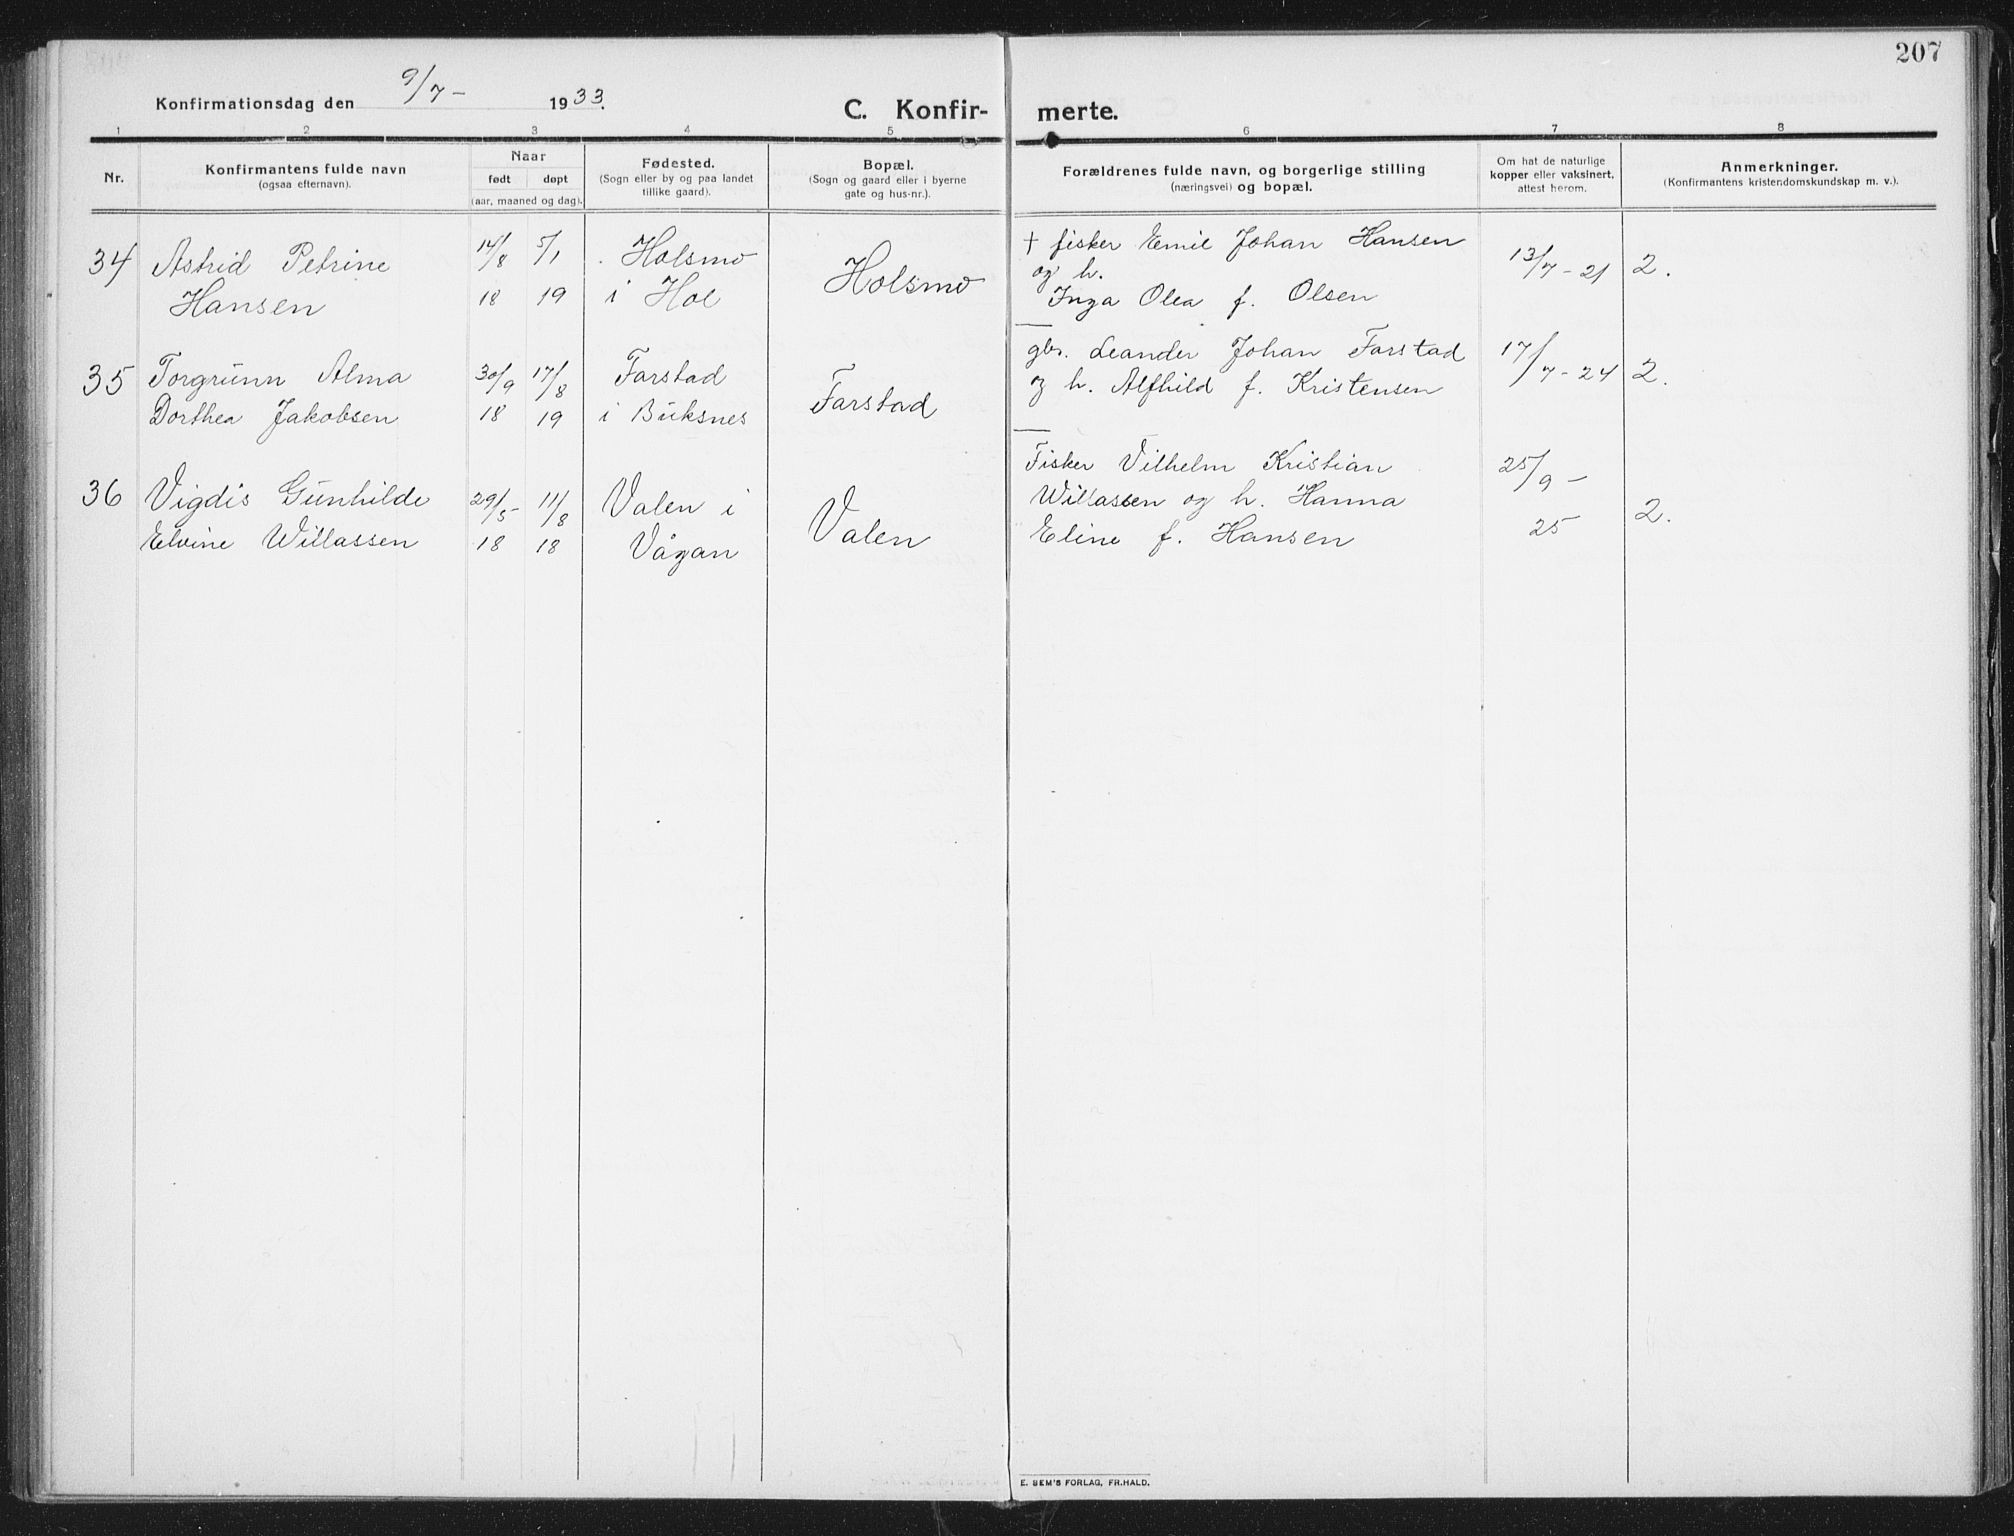 207
Konfirmationsdag den 9/7- 1933.
C. Konfir- merte.
1 2 3 4 5 6 7 8
Nr.
Konfirmantens fulde navn
(ogsaa efternavn).
Naar
født døpt
(aar, maaned og dag).
Fødested.
(Sogn eller by og paa landet
tillike gaard).
Bopæl.
(Sogn og gaard eller i byerne
gate og hus-nr.).
Forældrenes fulde navn, og borgerlige stilling
(næringsvei) og bopæl.
Om hat de naturlige
kopper eller vaksinert,
attest herom.
Anmerkninger.
(Konfirmantens kristendomskundskap m. v.).
34 Astrid Petrine
Hansen
14/8 5/1
18 19
Holsmo
i Hol
Holsmo
† fisker Emil Johan Hansen
og h.
Inga Olea f. Olsen
13/7-21
2.
35 Torgrunn Alma
Dorthea Jakobsen
30/9 17/8
18 19
Farstad
i Buksnes
Farstad
gbr. Leander Johan Farstad
og h. Alfhild f. Kristensen
17/7-24
2.
36 Vigdis Gunhilde
Elvine Willassen
29/5 11/8
18 18
Valen i
Vågan
Valen
Fisker Vilhelm Kristian
Willassen og h. Hanna
Eline f. Hansen
25/9-
25
2.
E. SEM'S FORLAG, FR.HALD.